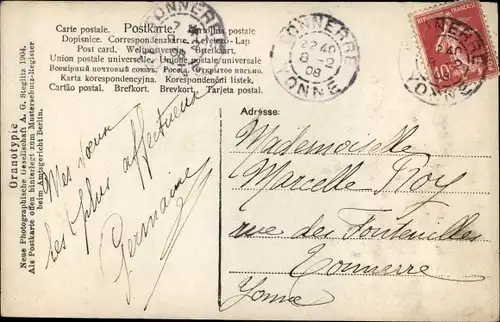 Carte postale. Postkarte. Cartolina postale
Dopisnice. Correspondenzkarte. Levelező-Lap
Post card. Weltpostverein. Briefkort.
Union postale universelle. Unione postale universale
Всемірный почтовый союз. Открытое письмо.
Karta korespondencyjna. Korespondenční listek.
Cartão postal. Brefkort. Brevkort. Tarjeta postal.
TONNERRE
YONNE
TONNERRE
22 40
8-2
08
YONNE
10
Oranotypie
Neue Photographische Gesellschaft A. G. Steglitz 1904.
Als Postkarte offen hinterlegt zum Musterschutz-Register
beim Amtsgericht Berlin.
Mes vœux
les plus affectueux
Germaine
Adresse:
Mademoiselle
Marcelle Roy
rue des Fontenilles
Tonnerre
Yonne